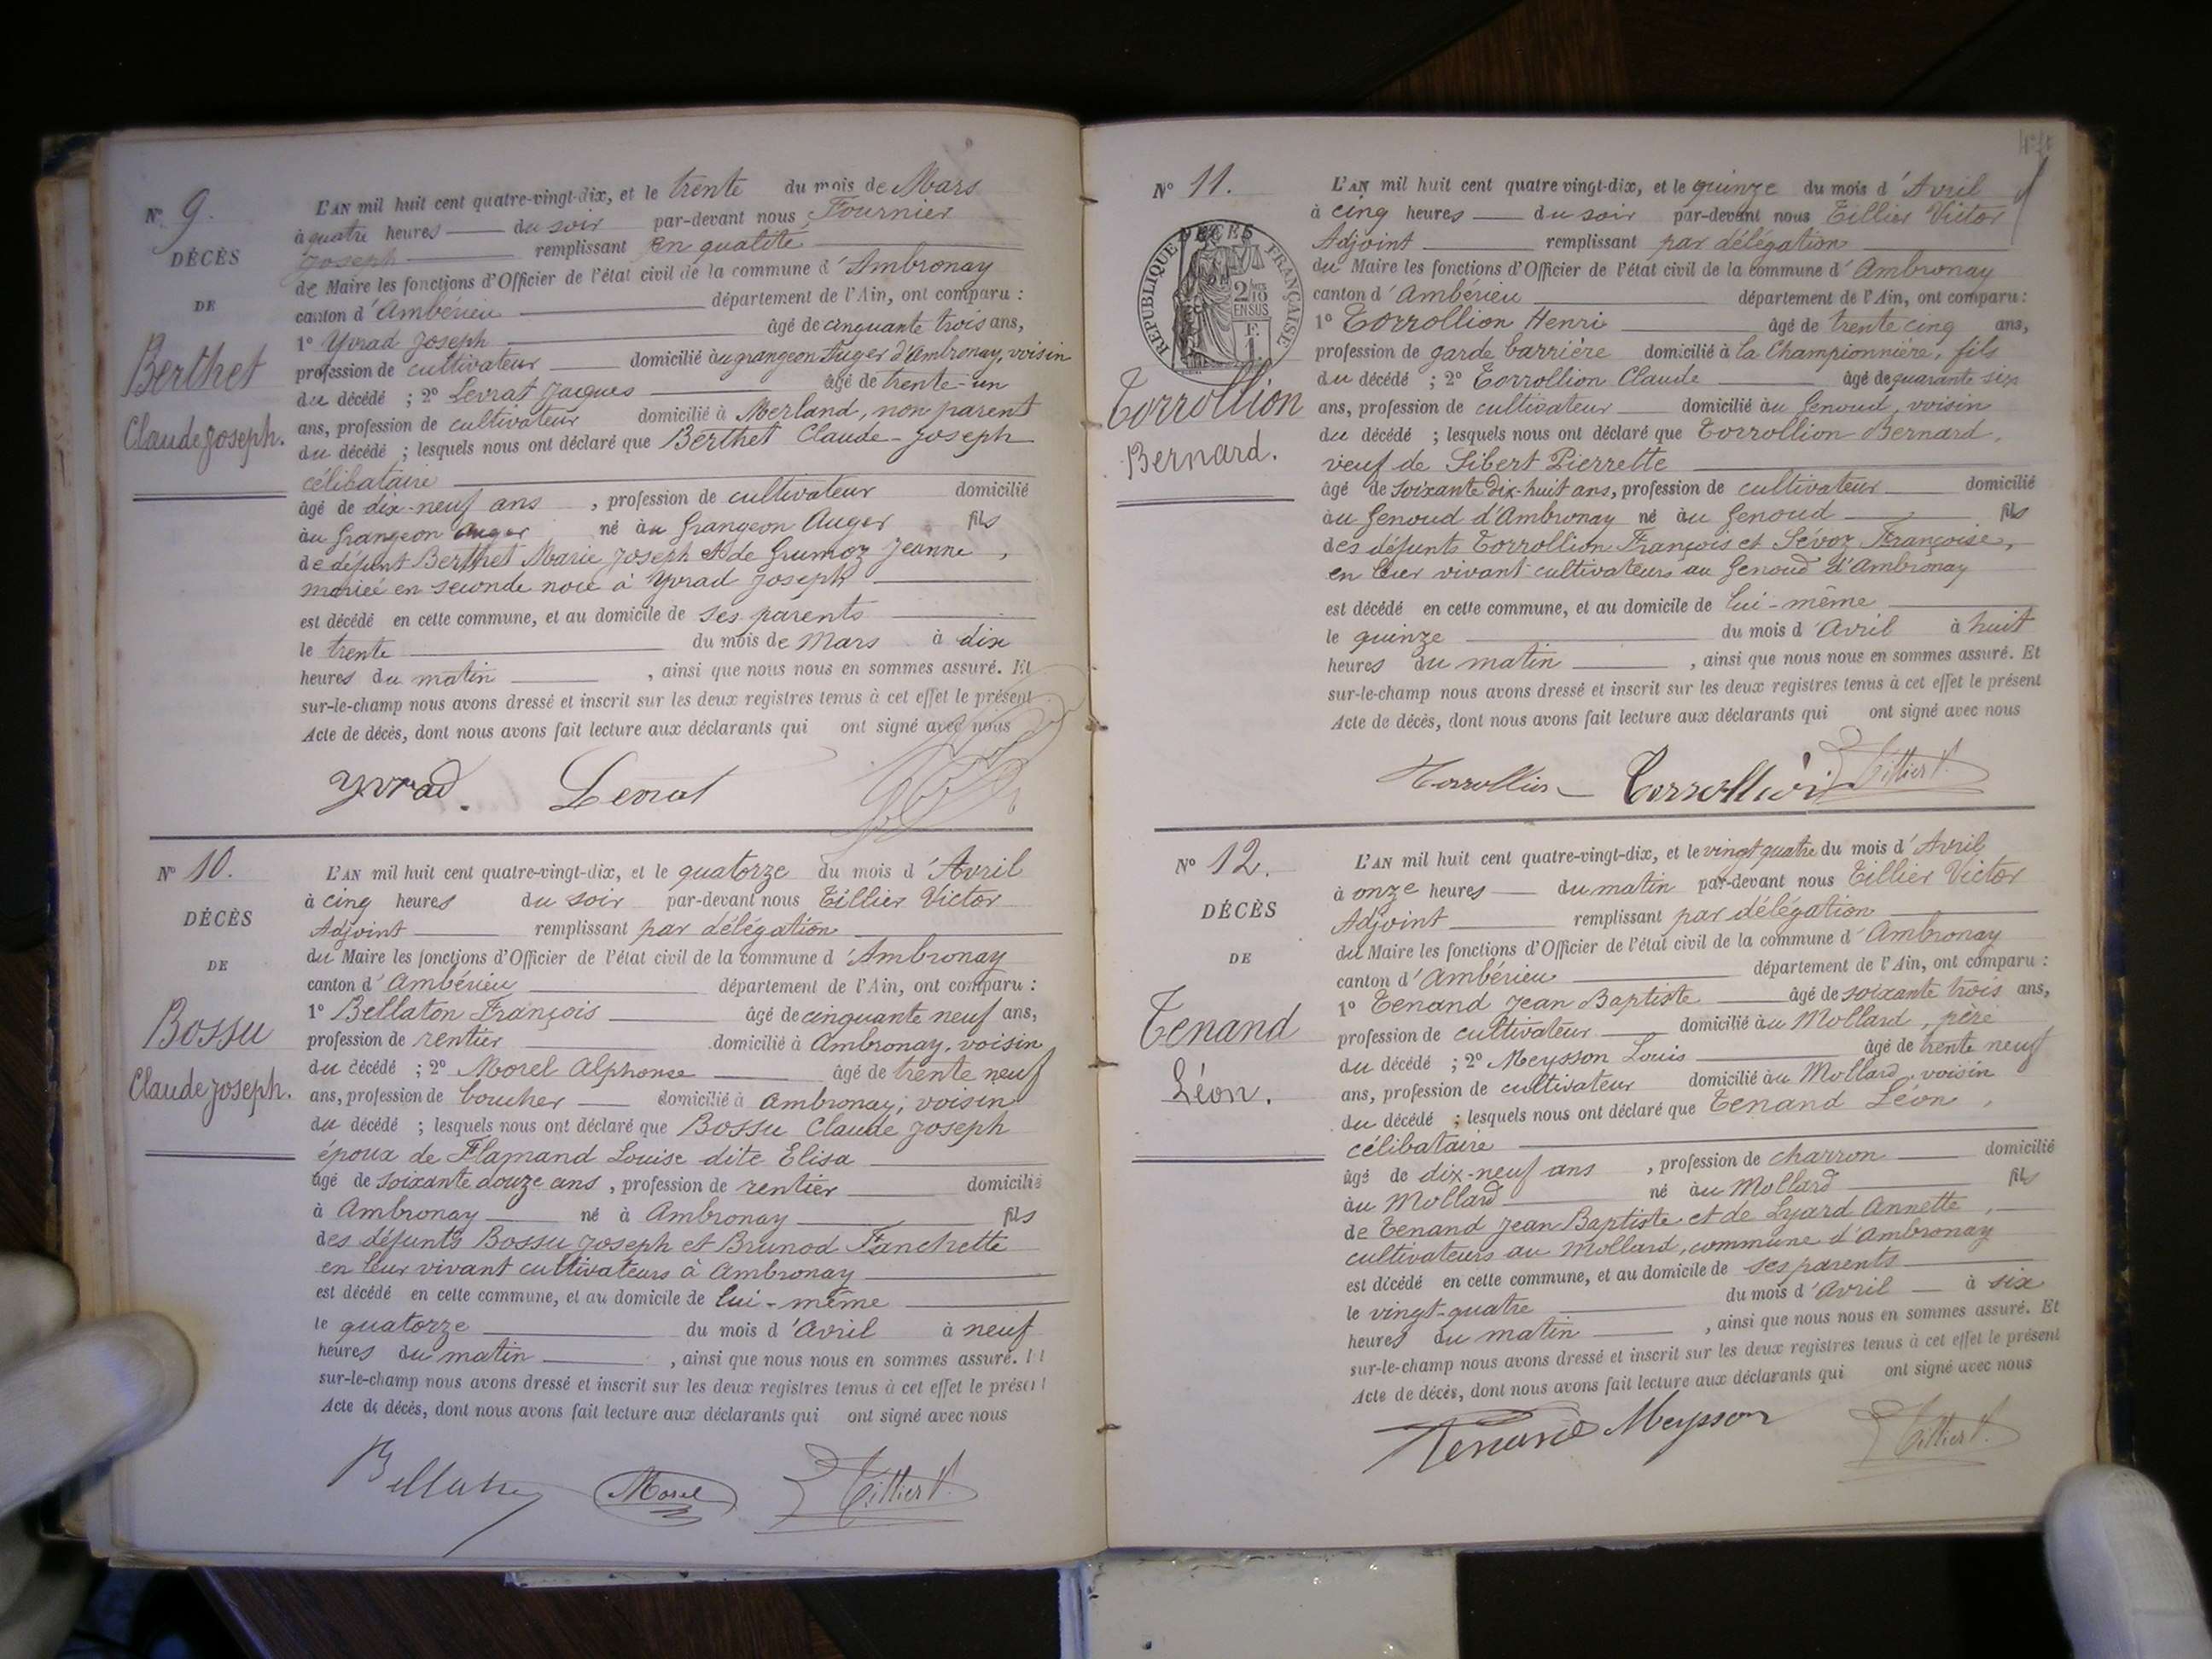 N° 9.
DÉCÈS
DE
Berthet
Claude Joseph.
L'AN mil huit cent quatre-vingt-dix, et le trente du mois de Mars
à quatre heures du soir par-devant nous Fournier
Joseph remplissant en qualité
de Maire les fonctions d'Officier de l'état civil de la commune d'Ambronay
canton d'Ambérieu département de l'Ain, ont comparu :
1° Yvrad Joseph âgé de cinquante trois ans,
profession de cultivateur domicilié au grangeon Auger d'Ambronay, voisin
du décédé ; 2° Levrat Jacques âgé de trente-un
ans, profession de cultivateur domicilié à Merland, non parent
du décédé ; lesquels nous ont déclaré que Berthet Claude-Joseph
célibataire
âgé de dix-neuf ans , profession de cultivateur domicilié
au Grangeon Auger né au Grangeon Auger fils
de défunt Berthet Marie Joseph et de Grumoz Jeanne,
mariée en seconde noce à Yvrad Joseph
est décédé en cette commune, et au domicile de ses parents
le trente du mois de Mars à dix
heures du matin , ainsi que nous nous en sommes assuré. Et
sur-le-champ nous avons dressé et inscrit sur les deux registres tenus à cet effet le présent
Acte de décès, dont nous avons fait lecture aux déclarants qui ont signé avec nous
Yvrad. Levrat
N° 10.
DÉCÈS
DE
Bossu
Claude Joseph.
L'AN mil huit cent quatre-vingt-dix, et le quatorze du mois d'Avril
à cinq heures du soir par-devant nous Tillier Victor
Adjoint remplissant par délégation
du Maire les fonctions d'Officier de l'état civil de la commune d'Ambronay
canton d'Ambérieu département de l'Ain, ont comparu :
1° Bellaton François âgé de cinquante neuf ans,
profession de rentier domicilié à Ambronay, voisin
du décédé ; 2° Morel Alphonse âgé de trente neuf
ans, profession de boucher domicilié à Ambronay, voisin
du décédé ; lesquels nous ont déclaré que Bossu Claude Joseph
époux de Flamand Louise dite Elisa
âgé de soixante douze ans , profession de rentier domicilié
à Ambronay né à Ambronay fils
des défunts Bossu Joseph et Brunod Fanchette
en leur vivant cultivateurs à Ambronay
est décédé en cette commune, et au domicile de lui-même
le quatorze du mois d'avril à neuf
heures du matin , ainsi que nous nous en sommes assuré. Et
sur-le-champ nous avons dressé et inscrit sur les deux registres tenus à cet effet le présent
Acte de décès, dont nous avons fait lecture aux déclarants qui ont signé avec nous
Bellaton Morel Tillier V.
N° 11.
DÉCÈS
RÉPUBLIQUE FRANÇAISE
2/10
EN SUS
Torrollion
Bernard.
L'AN mil huit cent quatre vingt-dix, et le quinze du mois d'Avril
à cinq heures du soir par-devant nous Tillier Victor
Adjoint remplissant par délégation
du Maire les fonctions d'Officier de l'état civil de la commune d'Ambronay
canton d'Ambérieu département de l'Ain, ont comparu :
1° Torrollion Henri âgé de trente cinq ans,
profession de garde barrière domicilié à la Championnière, fils
du décédé ; 2° Torrollion Claude âgé de quarante six
ans, profession de cultivateur domicilié au Genoud, voisin
du décédé ; lesquels nous ont déclaré que Torrollion Bernard,
veuf de Sibert Pierrette
âgé de soixante dix-huit ans, profession de cultivateur domicilié
au Genoud d'Ambronay né au Genoud fils
des défunts Torrollion François et Sevoz Françoise,
en leur vivant cultivateurs au Genoud d'Ambronay
est décédé en cette commune, et au domicile de lui-même
le quinze du mois d'Avril à huit
heures du matin , ainsi que nous nous en sommes assuré. Et
sur-le-champ nous avons dressé et inscrit sur les deux registres tenus à cet effet le présent
Acte de décès, dont nous avons fait lecture aux déclarants qui ont signé avec nous
Torrollion Torrollion Tillier V.
N° 12.
DÉCÈS
DE
Tenand
Léon.
L'AN mil huit cent quatre-vingt-dix, et le vingt quatre du mois d'Avril
à onze heures du matin par-devant nous Tillier Victor
Adjoint remplissant par délégation
du Maire les fonctions d'Officier de l'état civil de la commune d'Ambronay
canton d'Ambérieu département de l'Ain, ont comparu :
1° Tenand Jean Baptiste âgé de soixante trois ans,
profession de cultivateur domicilié au Mollard, père
du décédé ; 2° Meysson Louis âgé de trente neuf
ans, profession de cultivateur domicilié au Mollard, voisin
du décédé ; lesquels nous ont déclaré que Tenand Léon,
célibataire
âgé de dix-neuf ans , profession de charron domicilié
au Mollard né au Mollard fils
de Tenand Jean Baptiste et de Lyard Annette,
cultivateurs au Mollard, commune d'Ambronay
est décédé en cette commune, et au domicile de ses parents
le vingt-quatre du mois d'avril à six
heures du matin , ainsi que nous nous en sommes assuré. Et
sur-le-champ nous avons dressé et inscrit sur les deux registres tenus à cet effet le présent
Acte de décès, dont nous avons fait lecture aux déclarants qui ont signé avec nous
Tenand Meysson Tillier V.